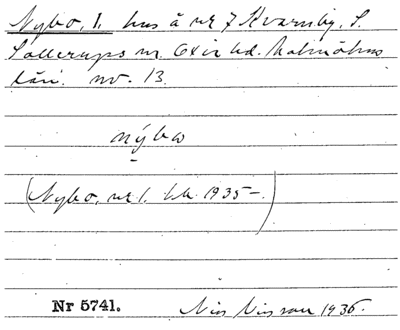 Nybo, 1. hus å nr 7 Kvarnby, S.
Sallerups sn. Oxie hd. Malmöhus
län. nv. 13.
nýbo
(Nybo, nr 1. tk. 1935–.)
Nr 5741. Nils Nilsson 1936.